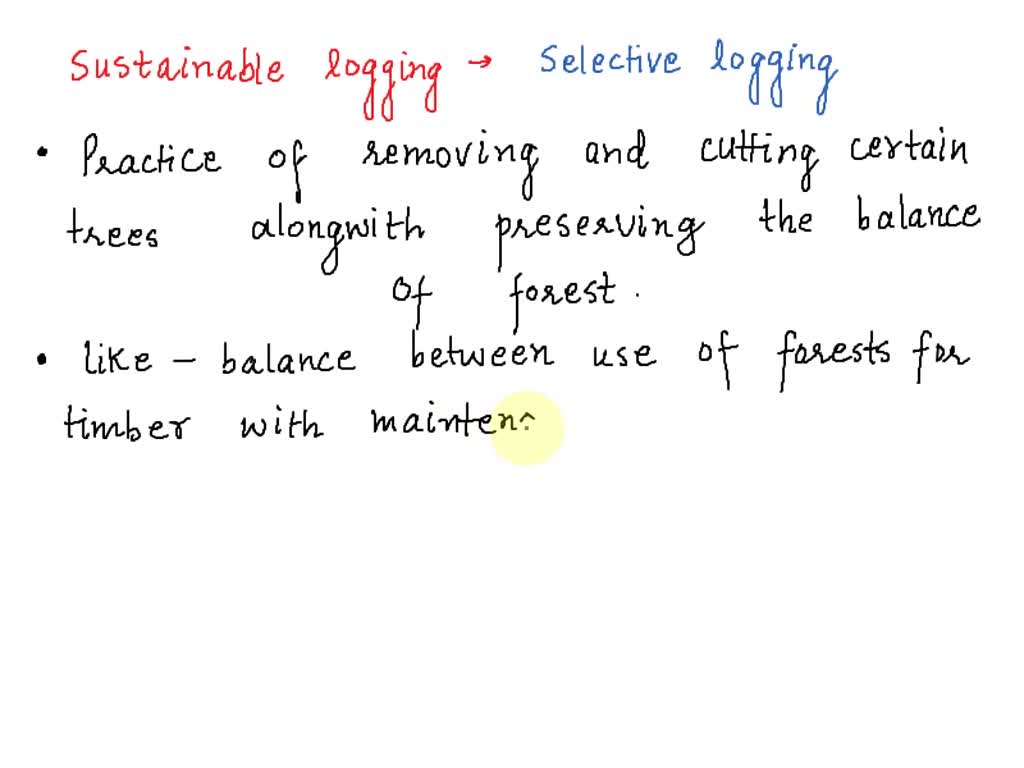 Sustainable logging → Selective logging
• Practice of removing and cutting certain
trees alongwith preserving the balance
of forest.
• like - balance between use of forests for
timber with mainten